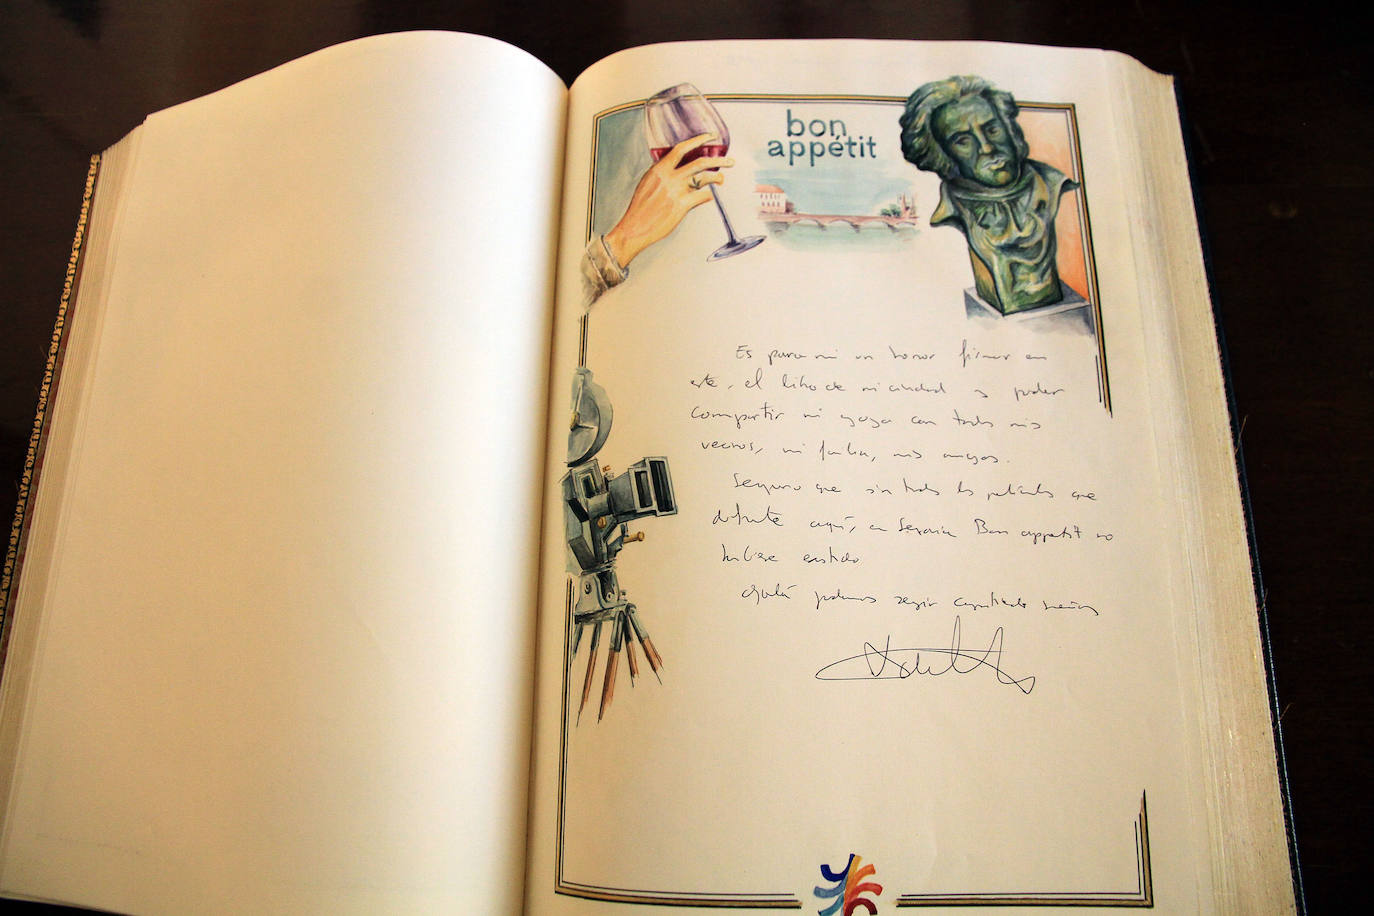 bon
appétit
Es para mi un honor firmar en
este, el libro de mi ciudad y poder
compartir mi goya con todos mis
vecinos, mi familia, mis amigos.
Seguro que sin todas las películas que
disfruté aquí, en Segovia Bon appetit no
hubiese existido
Ojalá podamos seguir cumpliendo sueños